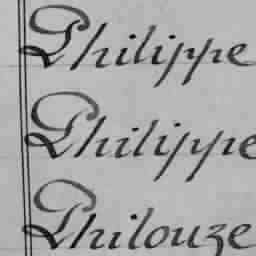 Philippe
Philippe
Philouze